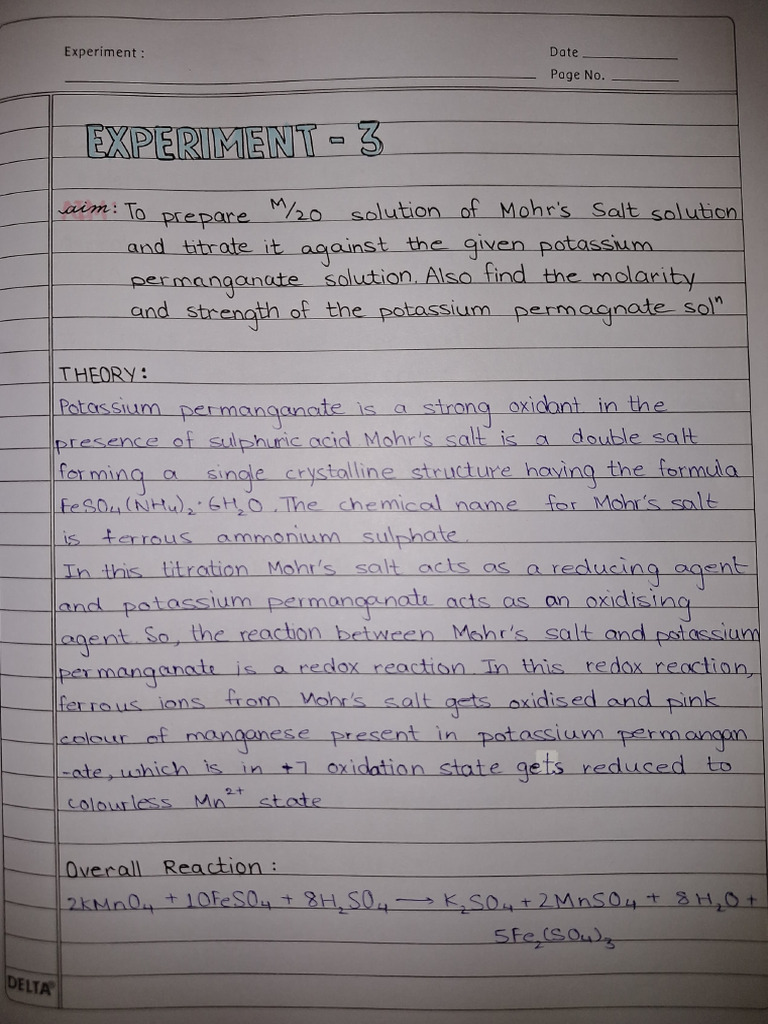 Experiment :
Date
Page No.
EXPERIMENT - 3
aim: To prepare M/20 solution of Mohr's Salt solution
and titrate it against the given potassium
permanganate solution. Also find the molarity
and strength of the potassium permagnate solⁿ
THEORY:
Potassium permanganate is a strong oxidant in the
presence of sulphuric acid Mohr's salt is a double salt
forming a single crystalline structure having the formula
FeSO₄(NH₄)₂·6H₂O. The chemical name for Mohr's salt
is ferrous ammonium sulphate.
In this titration Mohr's salt acts as a reducing agent
and potassium permanganate acts as an oxidising
agent. So, the reaction between Mohr's salt and potassium
permanganate is a redox reaction. In this redox reaction,
ferrous ions from Mohr's salt gets oxidised and pink
colour of manganese present in potassium permangan
-ate, which is in +7 oxidation state gets reduced to
colourless Mn²⁺ state
Overall Reaction :
2KMnO₄ + 10FeSO₄ + 8H₂SO₄ → K₂SO₄ + 2MnSO₄ + 8H₂O +
5Fe₂(SO₄)₃
DELTA®